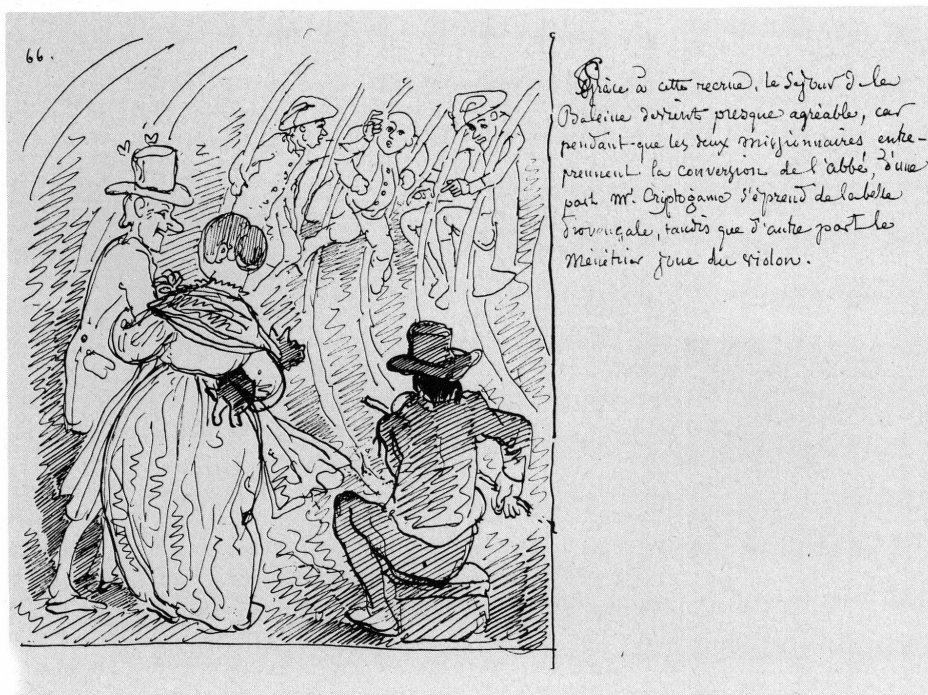 66.
Grâce à cette recrue, le Séjour de la
Baleine devint presque agréable, car
pendant-que les deux missionnaires entre-
prennent la conversion de l'abbé, d'une
part Mr. Criptogame s'éprend de la belle
Provençale, tandis que d'autre part le
Ménétrier joue du violon.